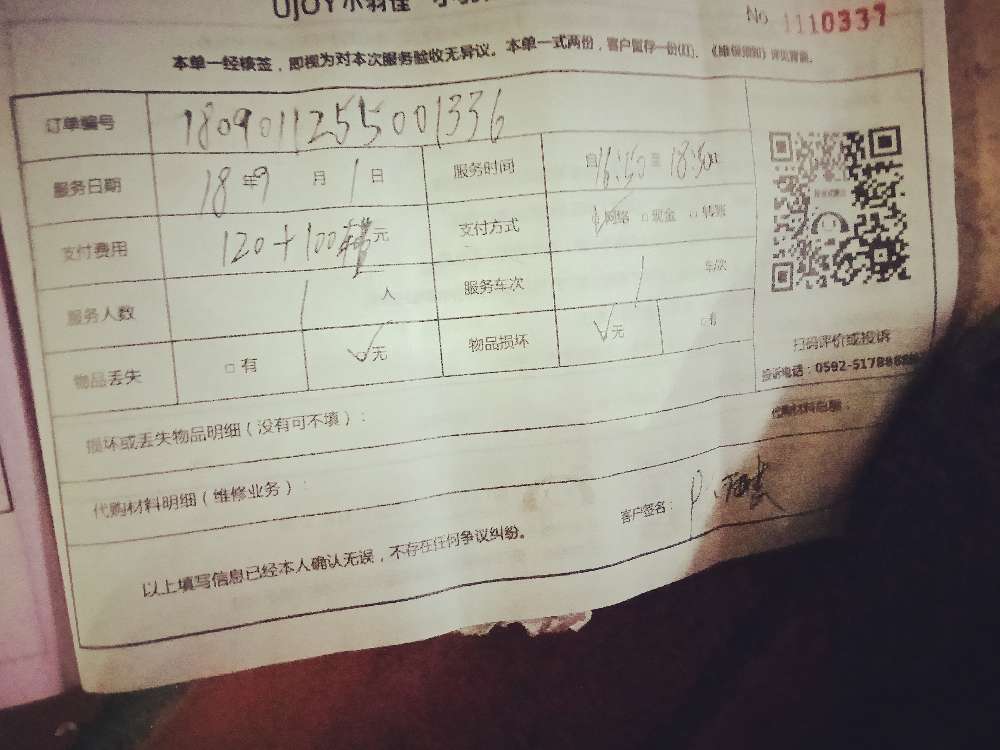 UJOY小羽佳
No 1110337
本单一经核签，即视为对本次服务验收无异议。本单一式两份，客户留存一份(红)。《维保须知》详见背面。
订单编号 180901125500 1336
服务日期 18年9月1日 服务时间 自16:50至18:50
支付费用 120+100楼元 支付方式 网络 □现金 □转账
服务人数 1人 服务车次 1车次
物品丢失 □有 ✓无 物品损坏 ✓无 □有
扫码评价或投诉
投诉电话：0592-5178888
损坏或丢失物品明细（没有可不填）：
代购材料明细（维修业务）：
客户签名：
以上填写信息已经本人确认无误，不存在任何争议纠纷。